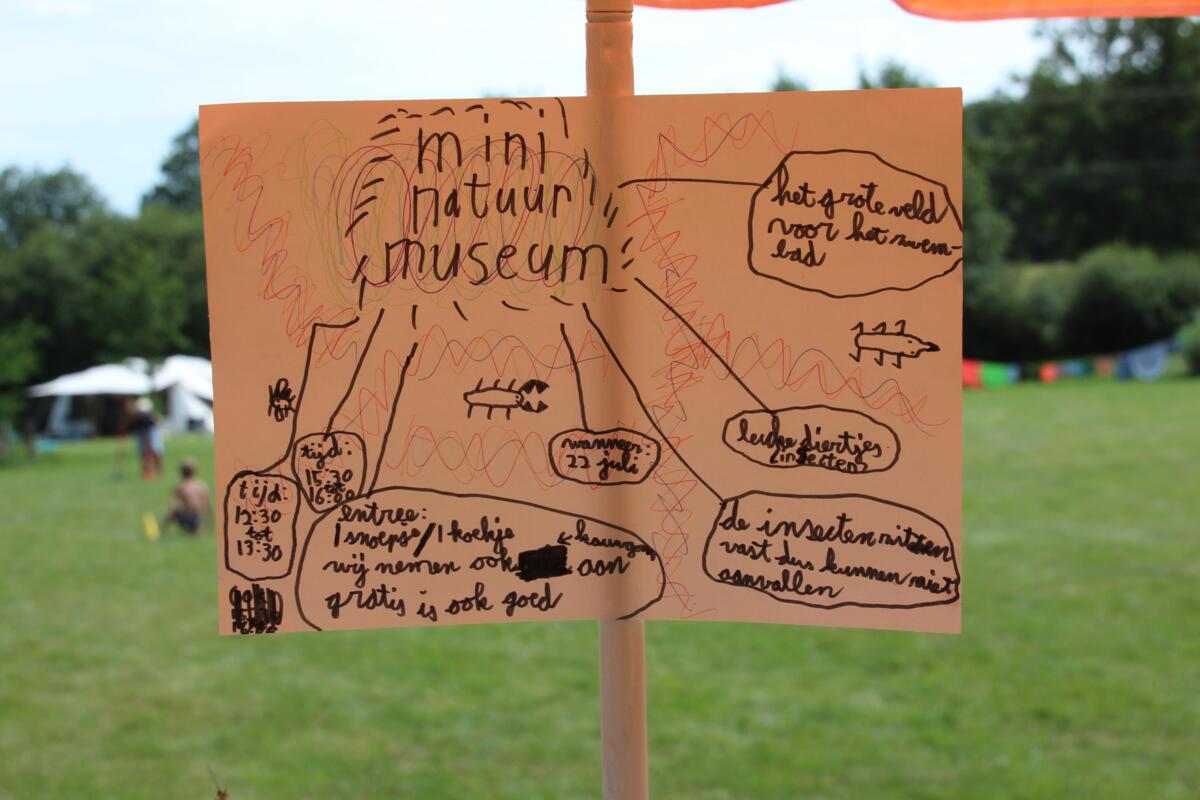 mini
natuur
museum
het grote veld
voor het zwem-
bad
leuke diertjes
(insecten)
wanneer:
22 juli
tijd:
15:30
tot
16:00
tijd:
12:30
tot
13:30
entree:
1 snoepje/1 koekje
← kauwgom
wij nemen ook aan
gratis is ook goed
de insecten zitten
vast dus kunnen niet
aanvallen